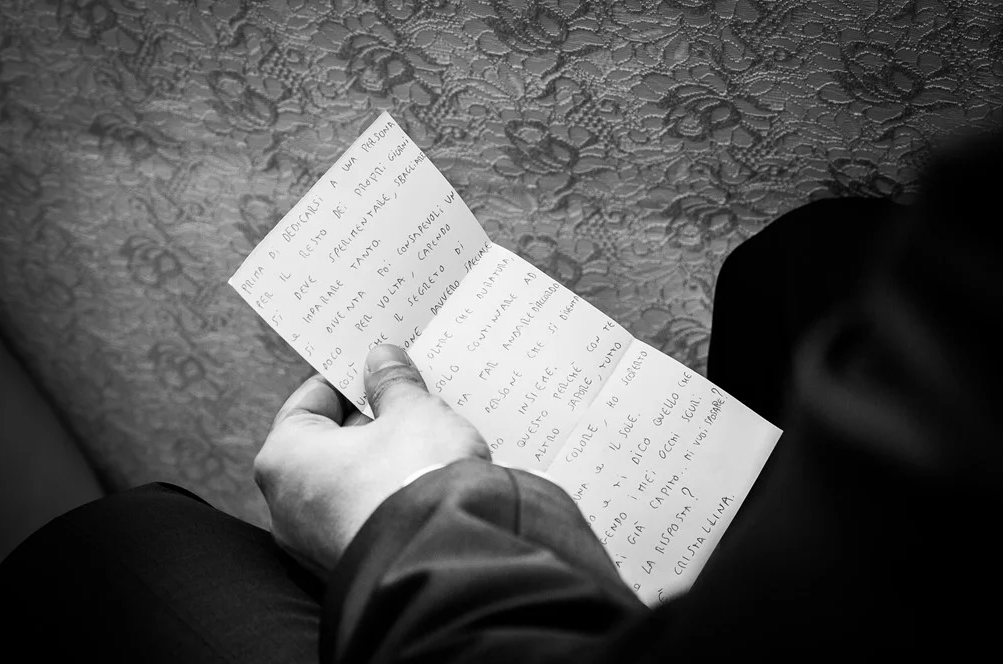 PRIMA DI DEDICARSI A UNA PERSONA
PER IL RESTO DEI PROPRI GIORNI
SI DEVE SPERIMENTARE, SBAGLIARE
e IMPARARE TANTO.
SI DIVENTA POI CONSAPEVOLI UN
POCO PER VOLTA, CAPENDO
COSÌ CHE IL SEGRETO DI
DAVVERO SPECIALE
OLTRE CHE DURATURA,
SOLO CONTINUARE AD
MA FAR ANDARE D'ACCORDO
PERSONE CHE SI DIVENTA
INSIEME.
QUESTO PERCHÈ CON TE
ALTRO SAPORE, TUTTO
COLORE, HO SCOPERTO
e IL SOLE.
e TI DICO QUELLO CHE
I MIEI OCCHI SCURI:
GIÀ CAPITO... MI VUOI SPOSARE?
e LA RISPOSTA?
È CRISTALLINA.